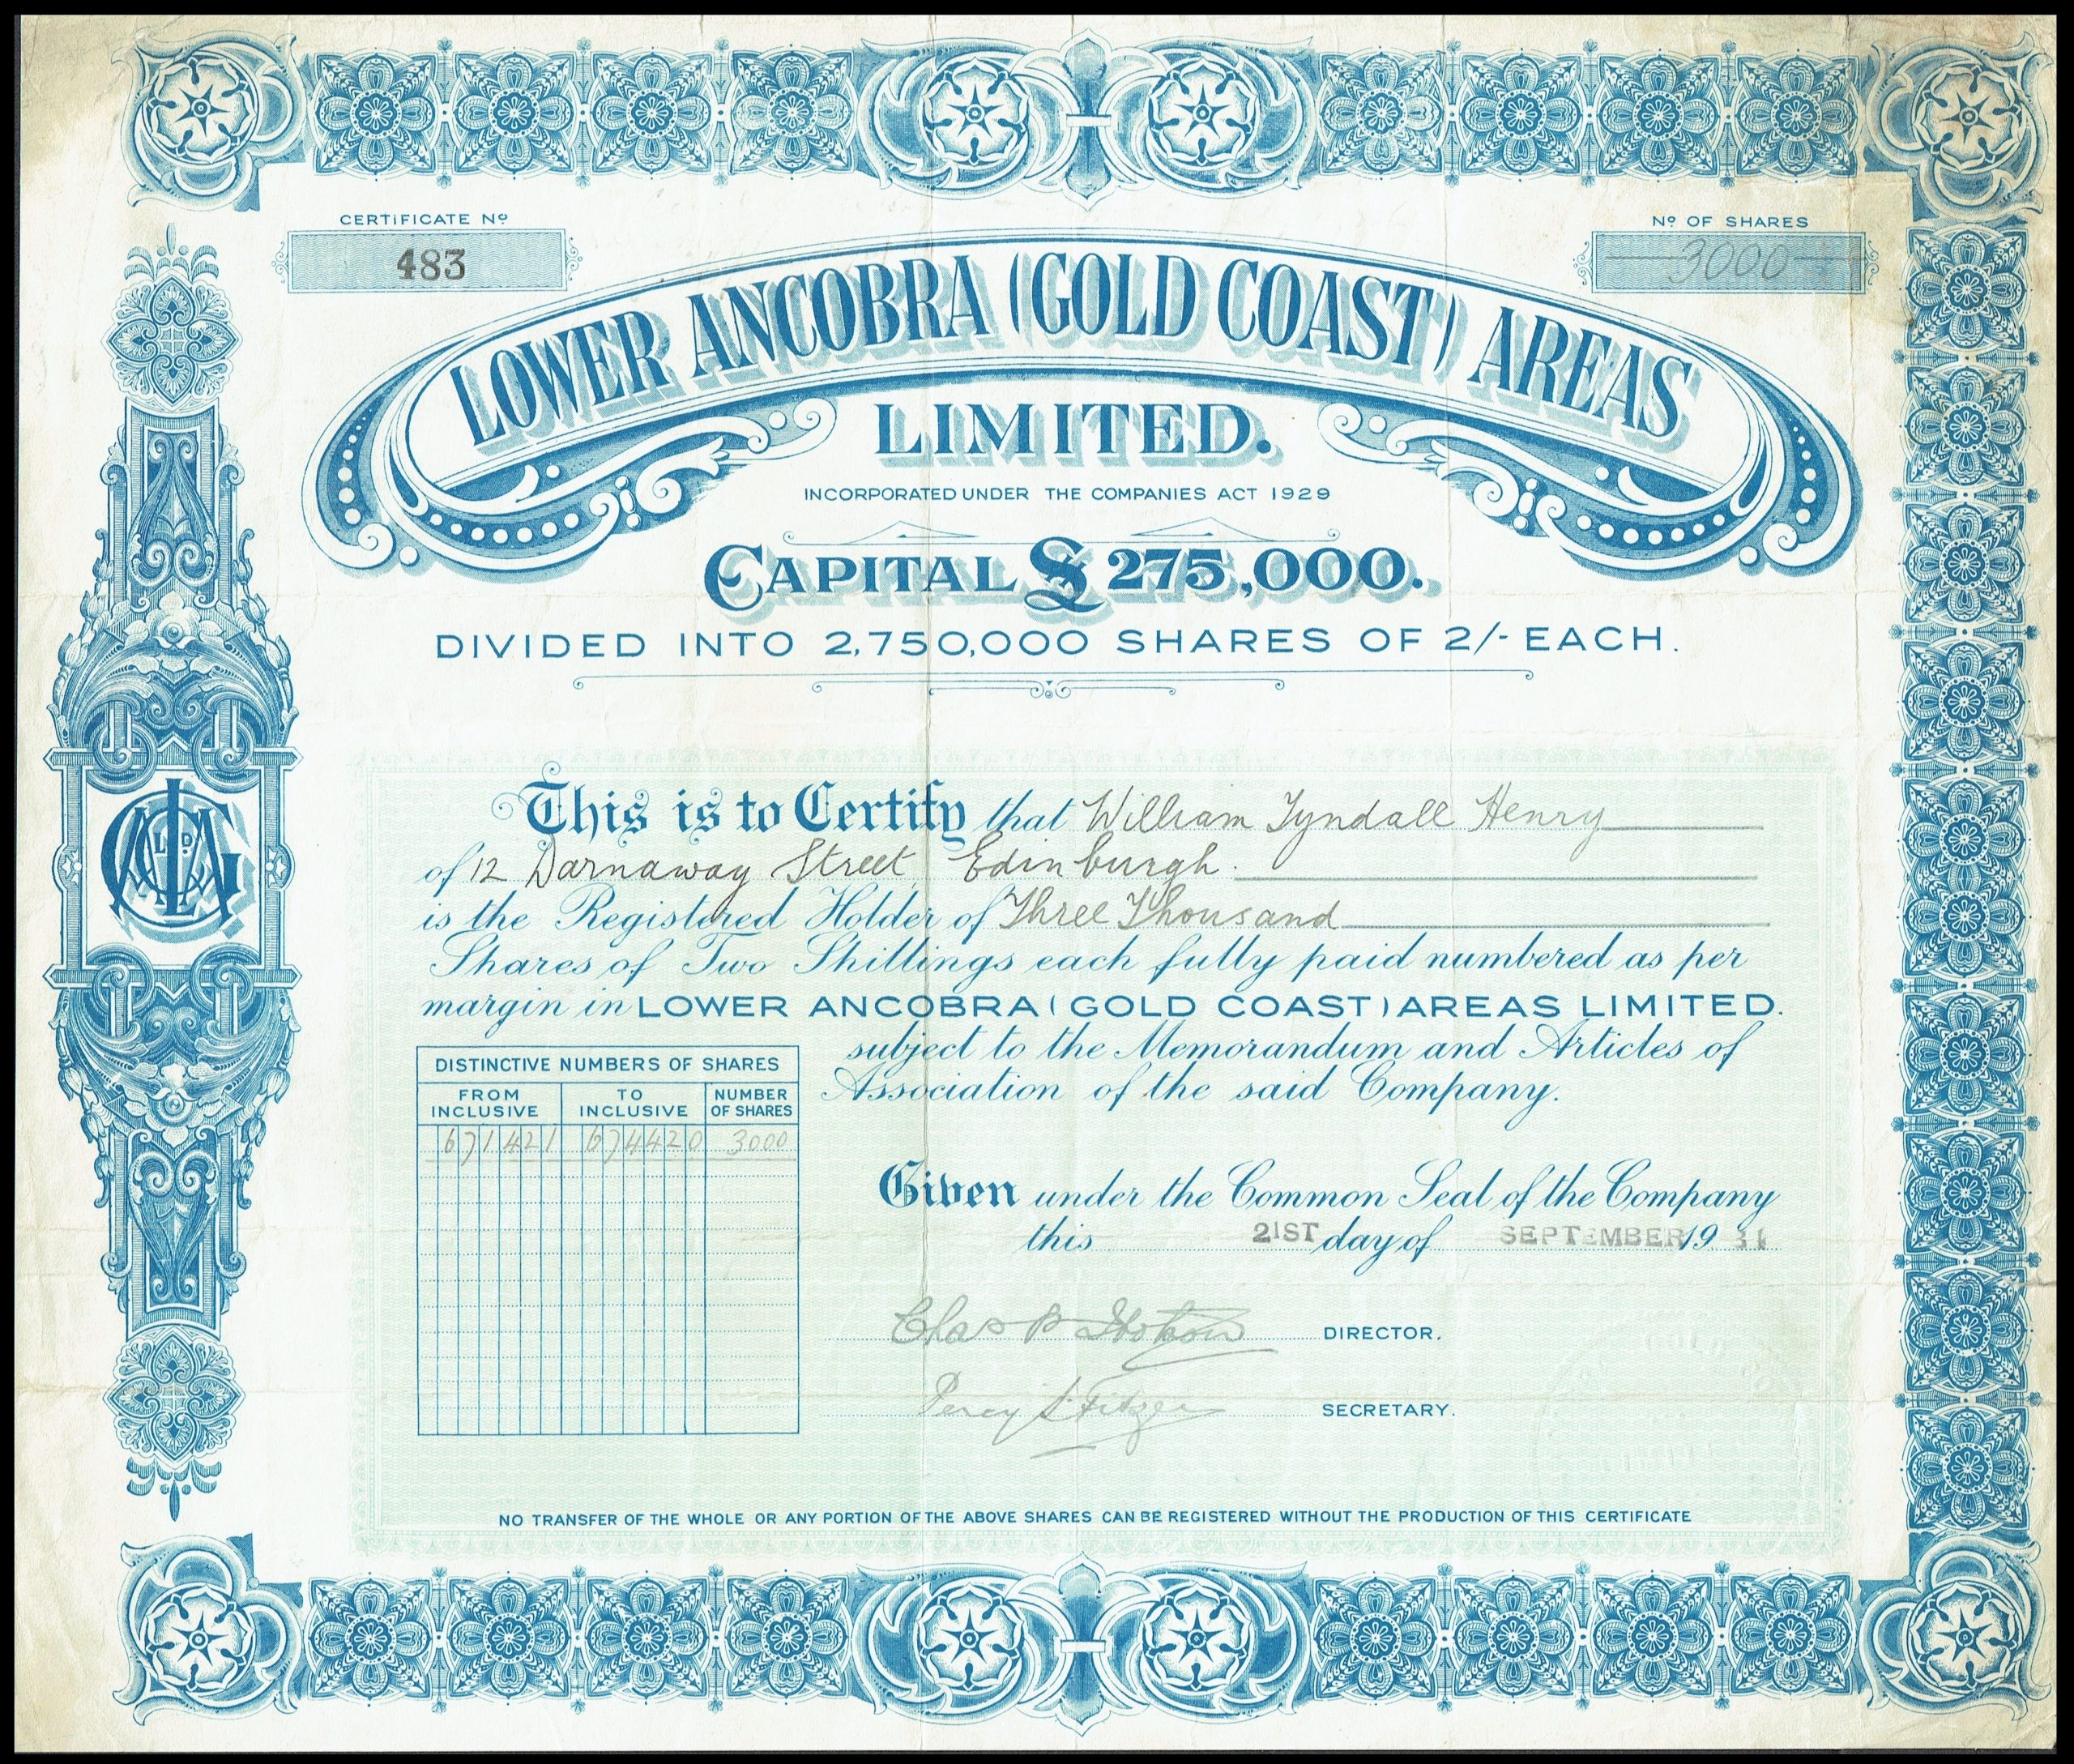 CERTIFICATE Nº
483
Nº OF SHARES
3000
LOWER ANCOBRA (GOLD COAST) AREAS
LIMITED.
INCORPORATED UNDER THE COMPANIES ACT 1929
CAPITAL £275,000.
DIVIDED INTO 2,750,000 SHARES OF 2/- EACH.
This is to Certify that William Tyndall Henry
of 12 Darnaway Street, Edinburgh.
is the Registered Holder of Three Thousand
Shares of Two Shillings each fully paid numbered as per
margin in LOWER ANCOBRA (GOLD COAST) AREAS LIMITED.
subject to the Memorandum and Articles of
Association of the said Company.
DISTINCTIVE NUMBERS OF SHARES
FROM INCLUSIVE TO INCLUSIVE NUMBER OF SHARES
671421 674420 3000
Given under the Common Seal of the Company
this 21ST day of SEPTEMBER 19
DIRECTOR.
Percy
SECRETARY.
NO TRANSFER OF THE WHOLE OR ANY PORTION OF THE ABOVE SHARES CAN BE REGISTERED WITHOUT THE PRODUCTION OF THIS CERTIFICATE